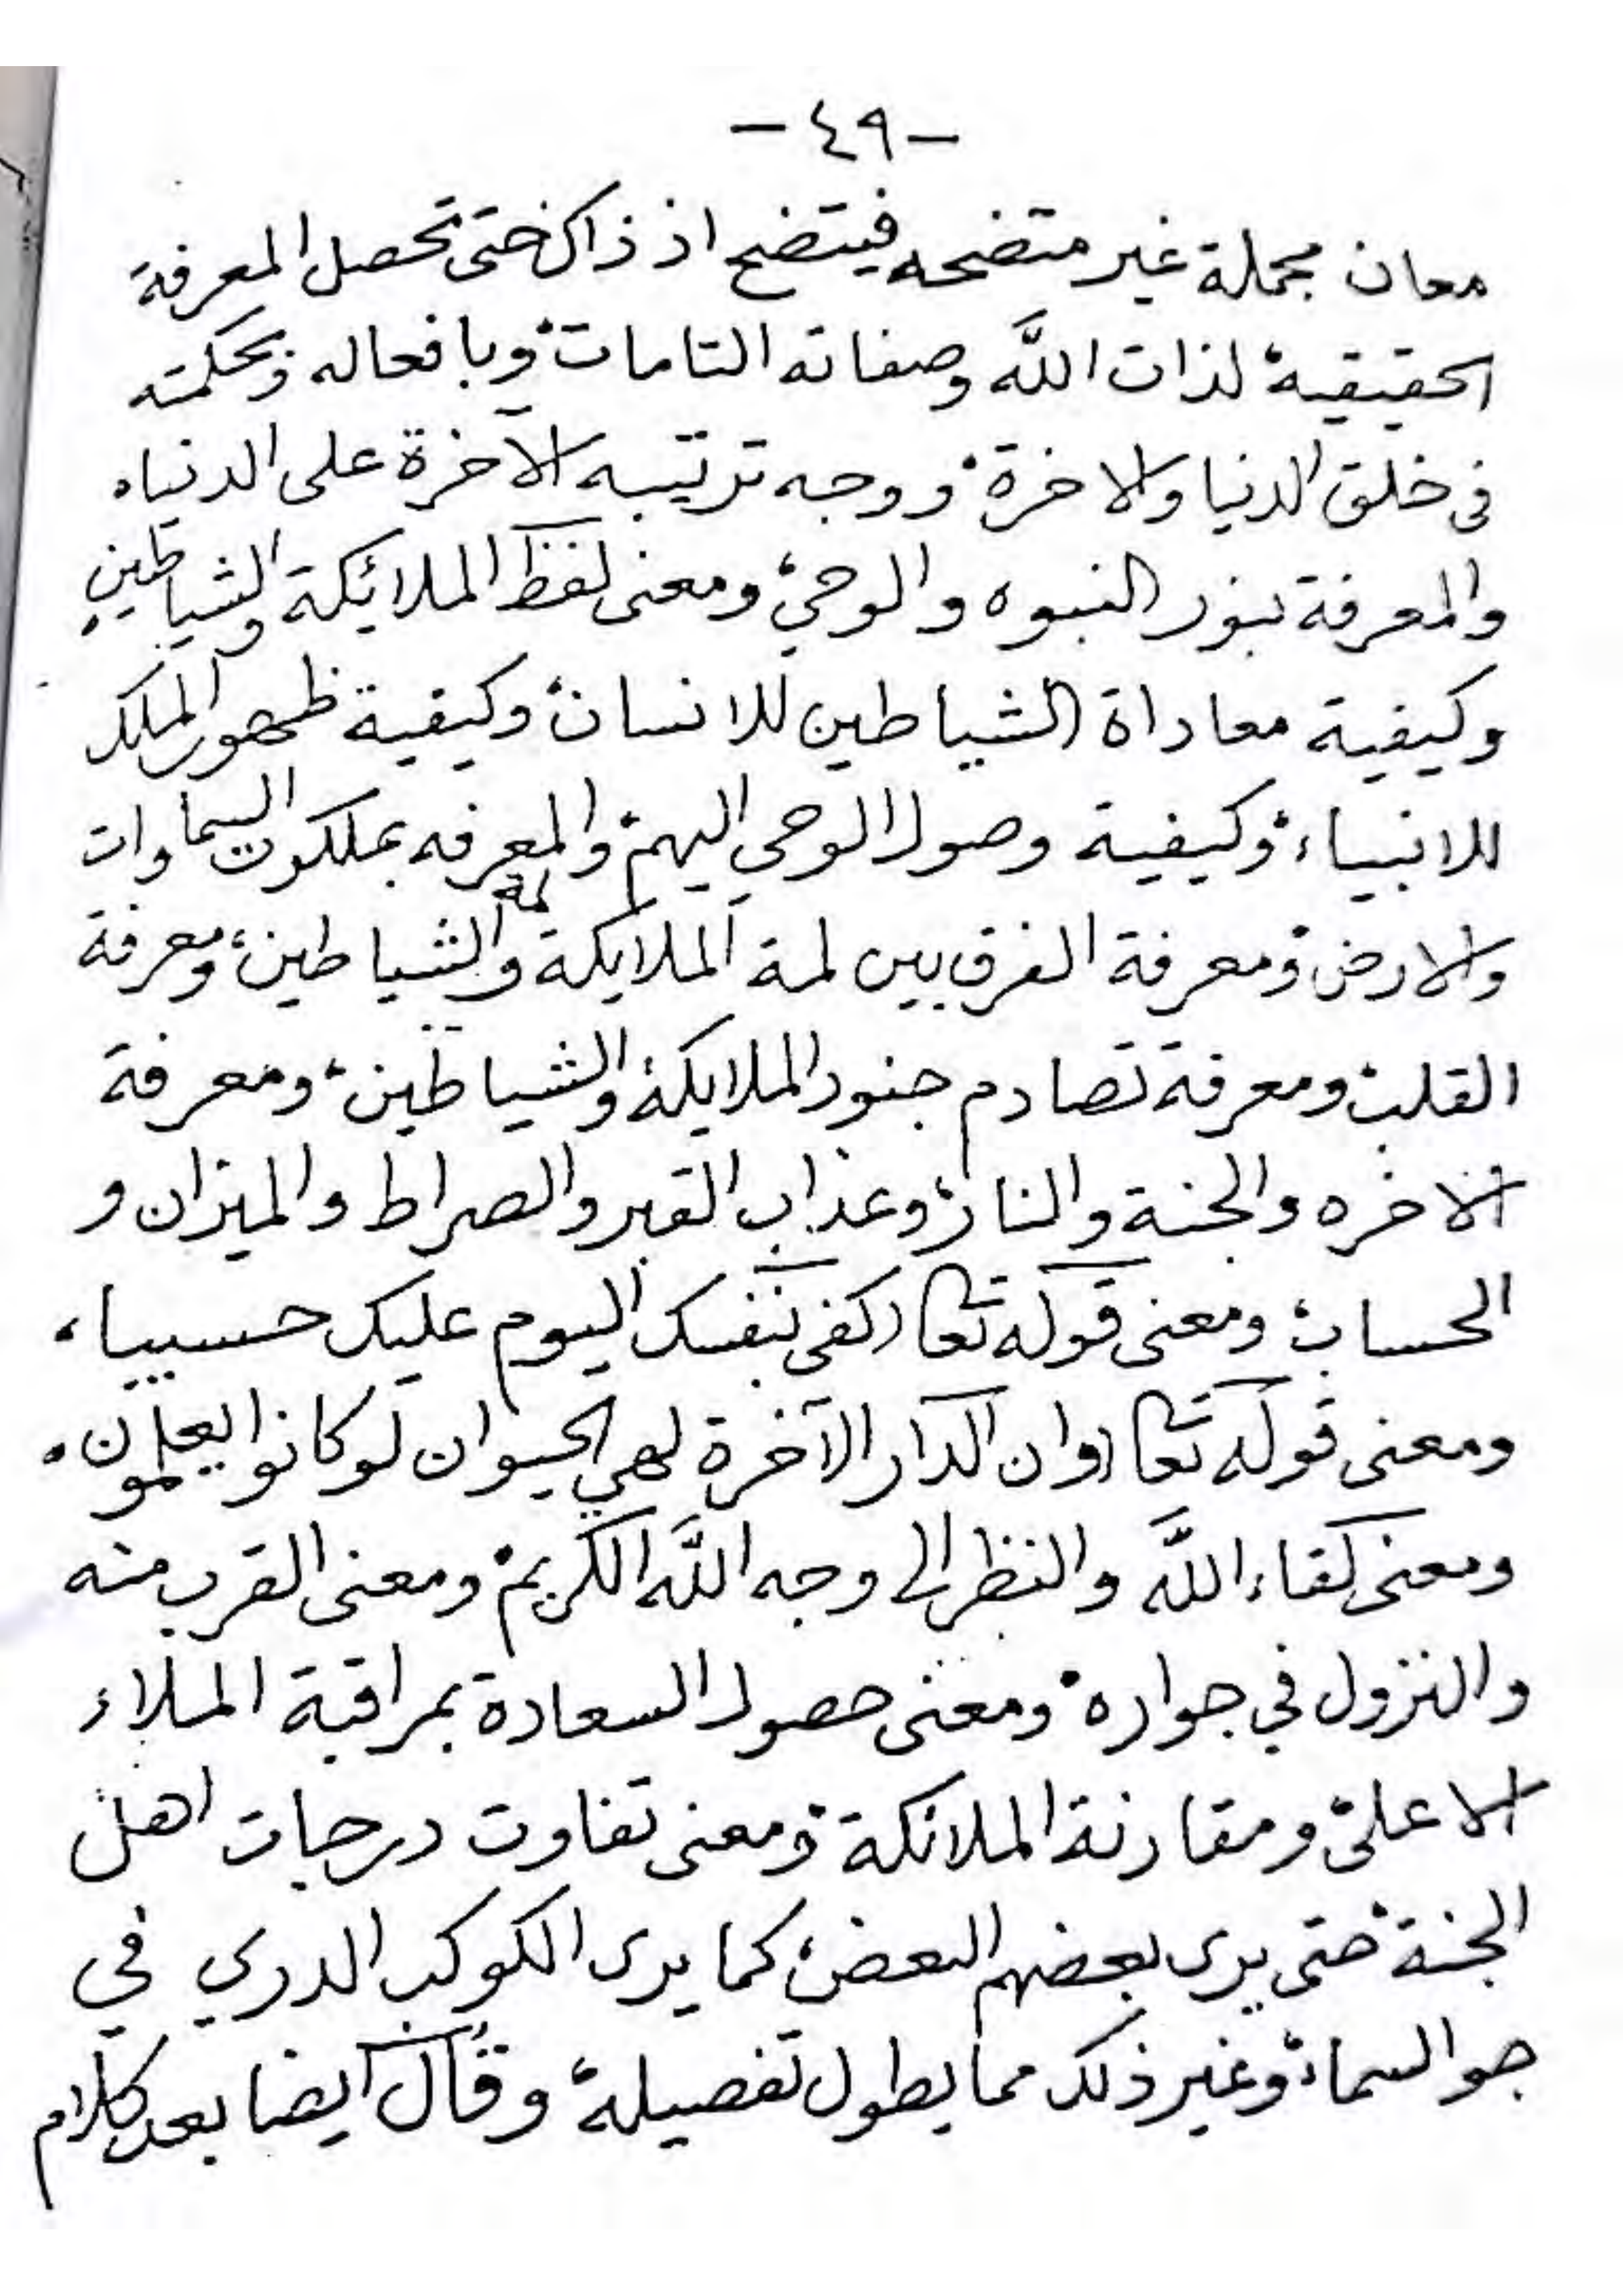 - ٤٩ -
معان مجملة غير متضحه فيتضح اذ ذاك حتى تحصل المعرفة
الحقيقية، لذات اللَّه وصفاته التامات، وبافعاله وبحكمته
فى خلق الدنيا والاخرة، ووجه ترتيبه الآخرة على الدنيا،
والمعرفة بنور النبوه والوحي، ومعنى لفظ الملائكة والشياطين،
وكيفية معاداة الشياطين للانسان، وكيفية ظهور الملك
للانبياء، وكيفية وصول الوحي اليهم، والمعرفه بملكوت السماوات
والارض، ومعرفة الفرق بين لمة الملايكة ولمة الشياطين، ومعرفة
القلب، ومعرفة تصادم جنود الملايكة والشياطين، ومعرفة
الاخره والجنة والنار، وعذاب القبر والصراط والميزان و
الحساب، ومعنى قوله تعا (كفى بنفسك اليوم عليك حسيبا،
ومعنى قوله تعا (وان الدار الآخرة لهي الحيوان لو كانوا يعلمون.
ومعنى لقاء اللَّه والنظر الى وجه اللَّه الكريم، ومعنى القرب منه
والنزول في جواره، ومعنى حصول السعادة بمراقبة الملاء
الاعلى، ومقارنة الملائكة، ومعنى تفاوت درجات اهل
الجنة، حتى يرى بعضهم البعض، كما يرى الكوكب الدري في
جو السماء، وغير ذلك مما يطول تفصيله، وقال ايضا بعد كلام